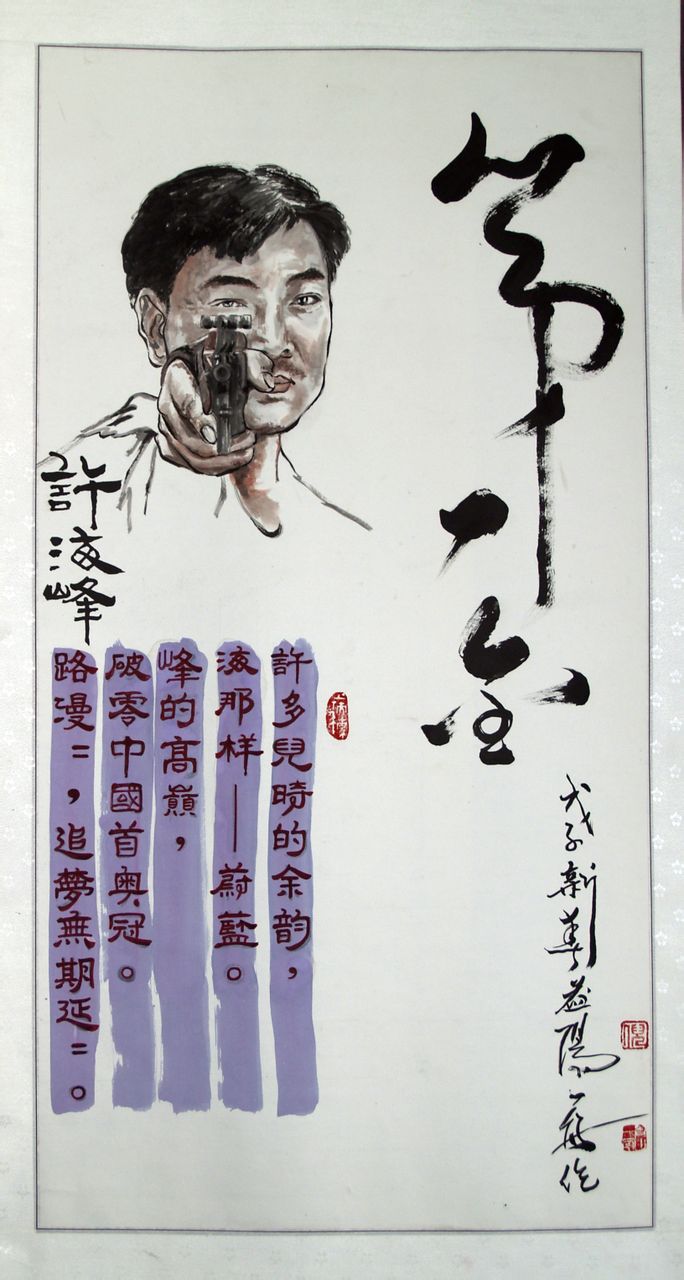 第一金
戊子新春益陽作
許多兒時的余韵，
海那样——蔚藍。
峰的髙巔，
破零中國首奥冠。
路漫=，追夢無期延=。
許海峰